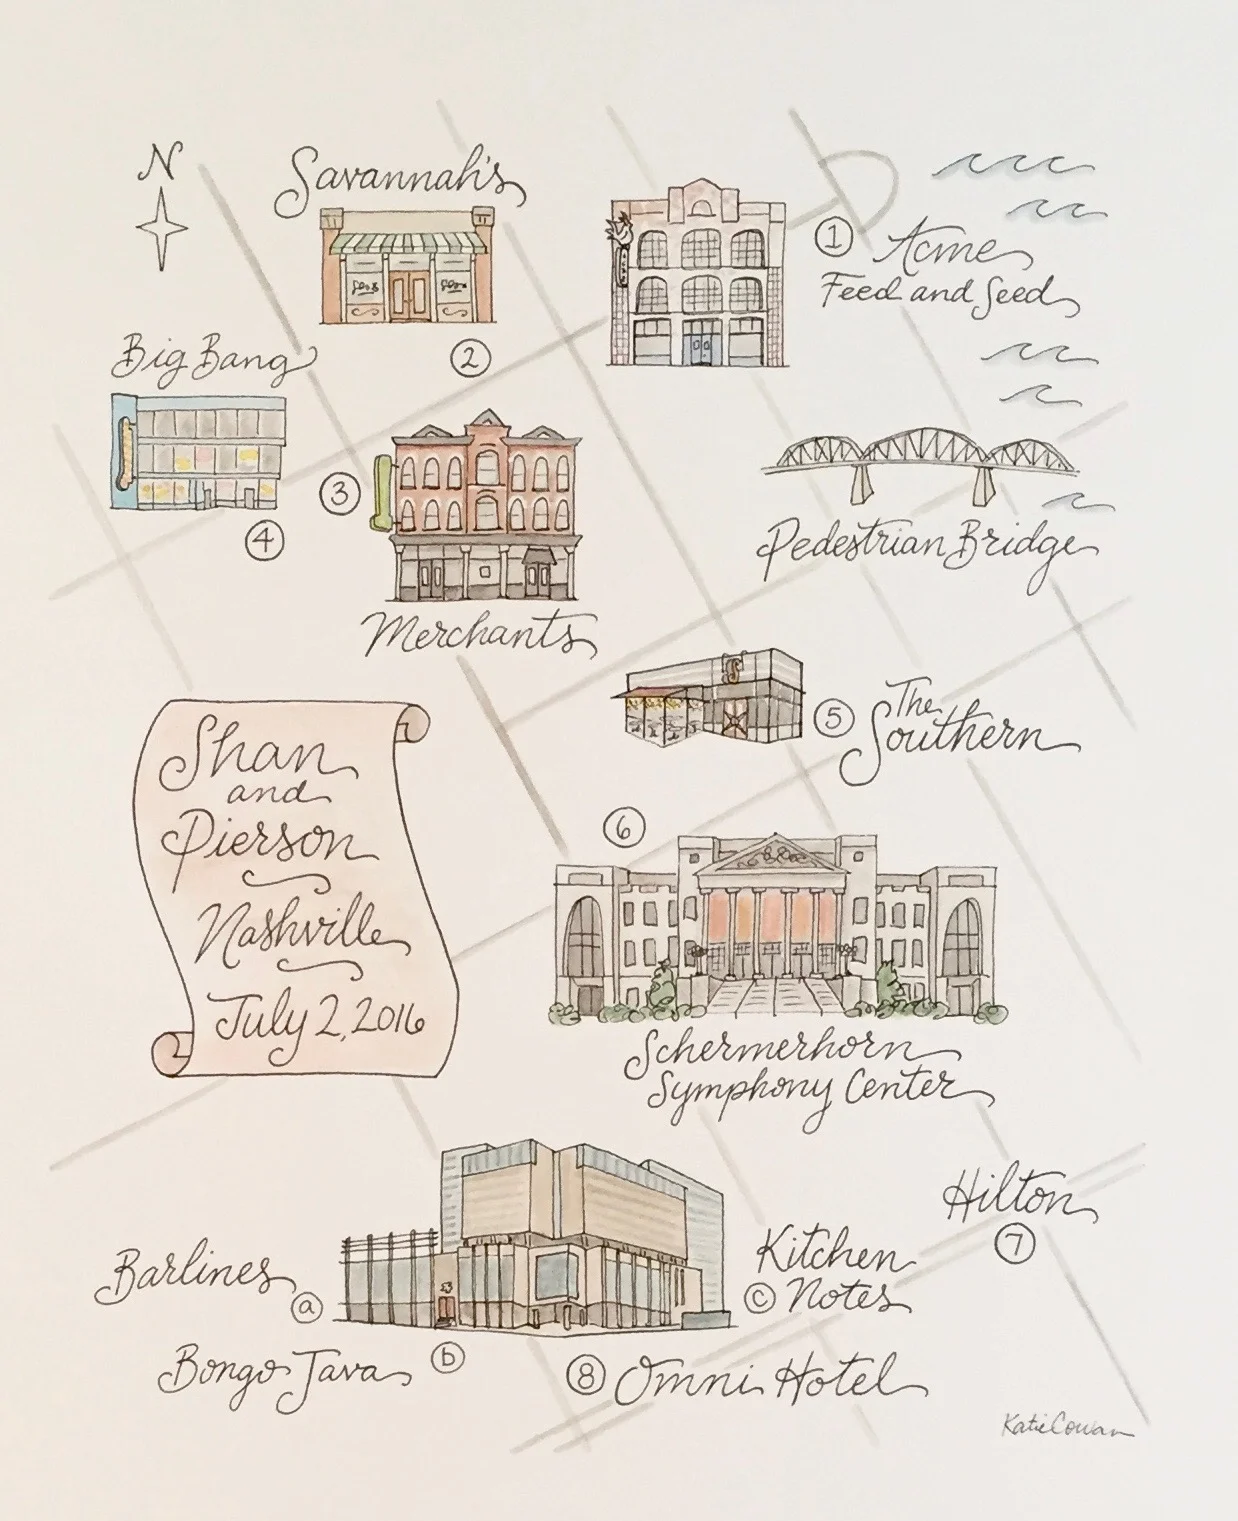 N
Savannah's
2
1 Acme
Feed and Seed
Big Bang
4
3
Merchants
Pedestrian Bridge
5 The
Southern
Shan
and
Pierson
Nashville
July 2, 2016
6
Schermerhorn
Symphony Center
Hilton
7
Barlines
a
Bongo Java
b
Kitchen
c Notes
8 Omni Hotel
Katie Cowan